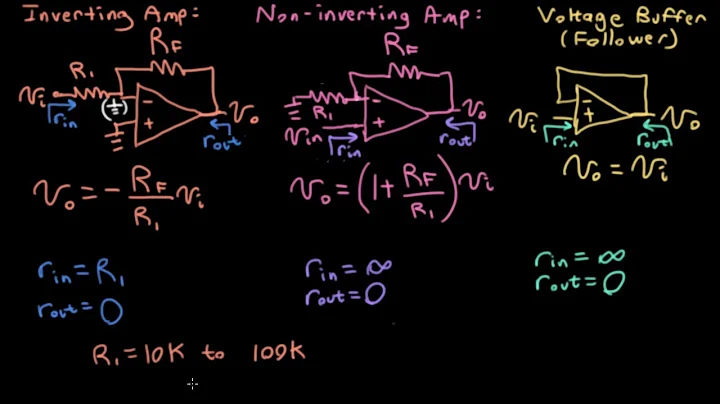 Inverting Amp:
R_F
R_1
v_i
r_in
−
+
v_o
r_out
v_o = − R_F/R_1 v_i
r_in = R_1
r_out = 0
R_1 = 10K to 100K
Non-inverting Amp:
R_F
R_1
v_in
r_in
−
+
v_o
r_out
v_o = (1 + R_F/R_1) v_i
r_in = ∞
r_out = 0
Voltage Buffer
(Follower)
v_i
r_in
−
+
v_o
r_out
v_o = v_i
r_in = ∞
r_out = 0